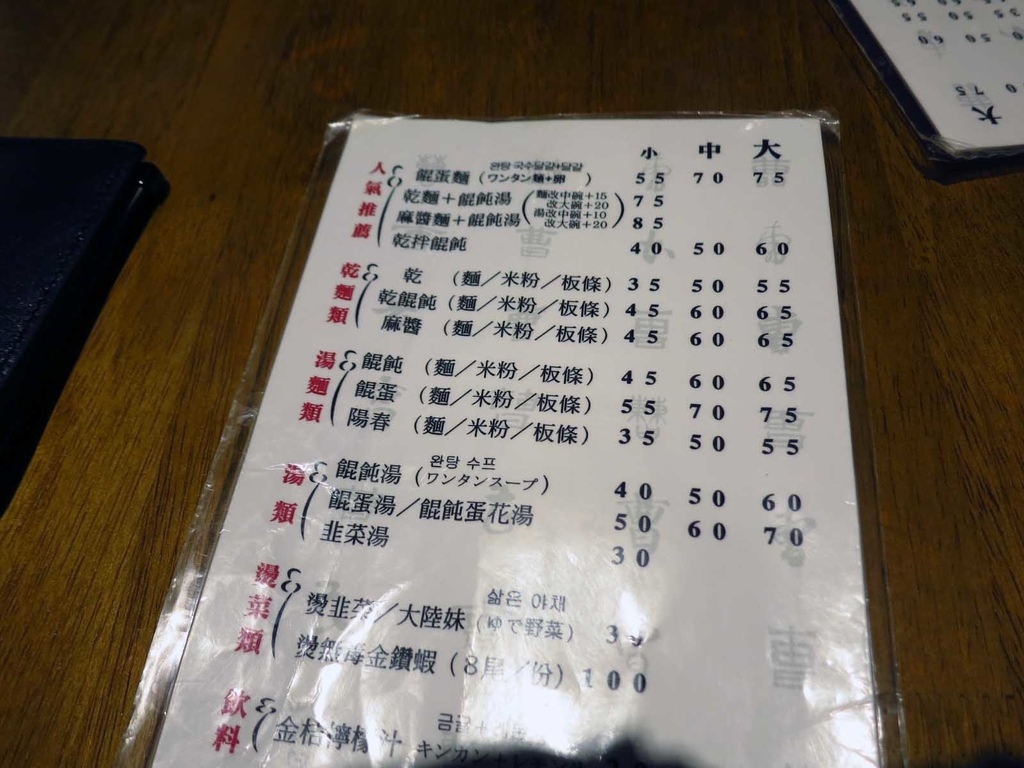 小 中 大
人氣推薦
완탕 국수달걀+달걀
餛蛋麵（ワンタン麺+卵） 55 70 75
乾麵＋餛飩湯 麵改中碗+15 改大碗+20 75
麻醬麵＋餛飩湯 湯改中碗+10 改大碗+20 85
乾拌餛飩 40 50 60
乾麵類
乾（麵／米粉／板條） 35 50 55
乾餛飩（麵／米粉／板條） 45 60 65
麻醬（麵／米粉／板條） 45 60 65
湯麵類
餛飩（麵／米粉／板條） 45 60 65
餛蛋（麵／米粉／板條） 55 70 75
陽春（麵／米粉／板條） 35 50 55
湯類
완탕 수프
餛飩湯（ワンタンスープ） 40 50 60
餛蛋湯／餛飩蛋花湯 50 60 70
韭菜湯 30
燙菜類
삶은 야채
燙韭菜／大陸妹（ゆで野菜）
燙無毒金鑽蝦（8尾／份） 100
飲料
금귤+
金桔檸檬汁 キンカン
大
75